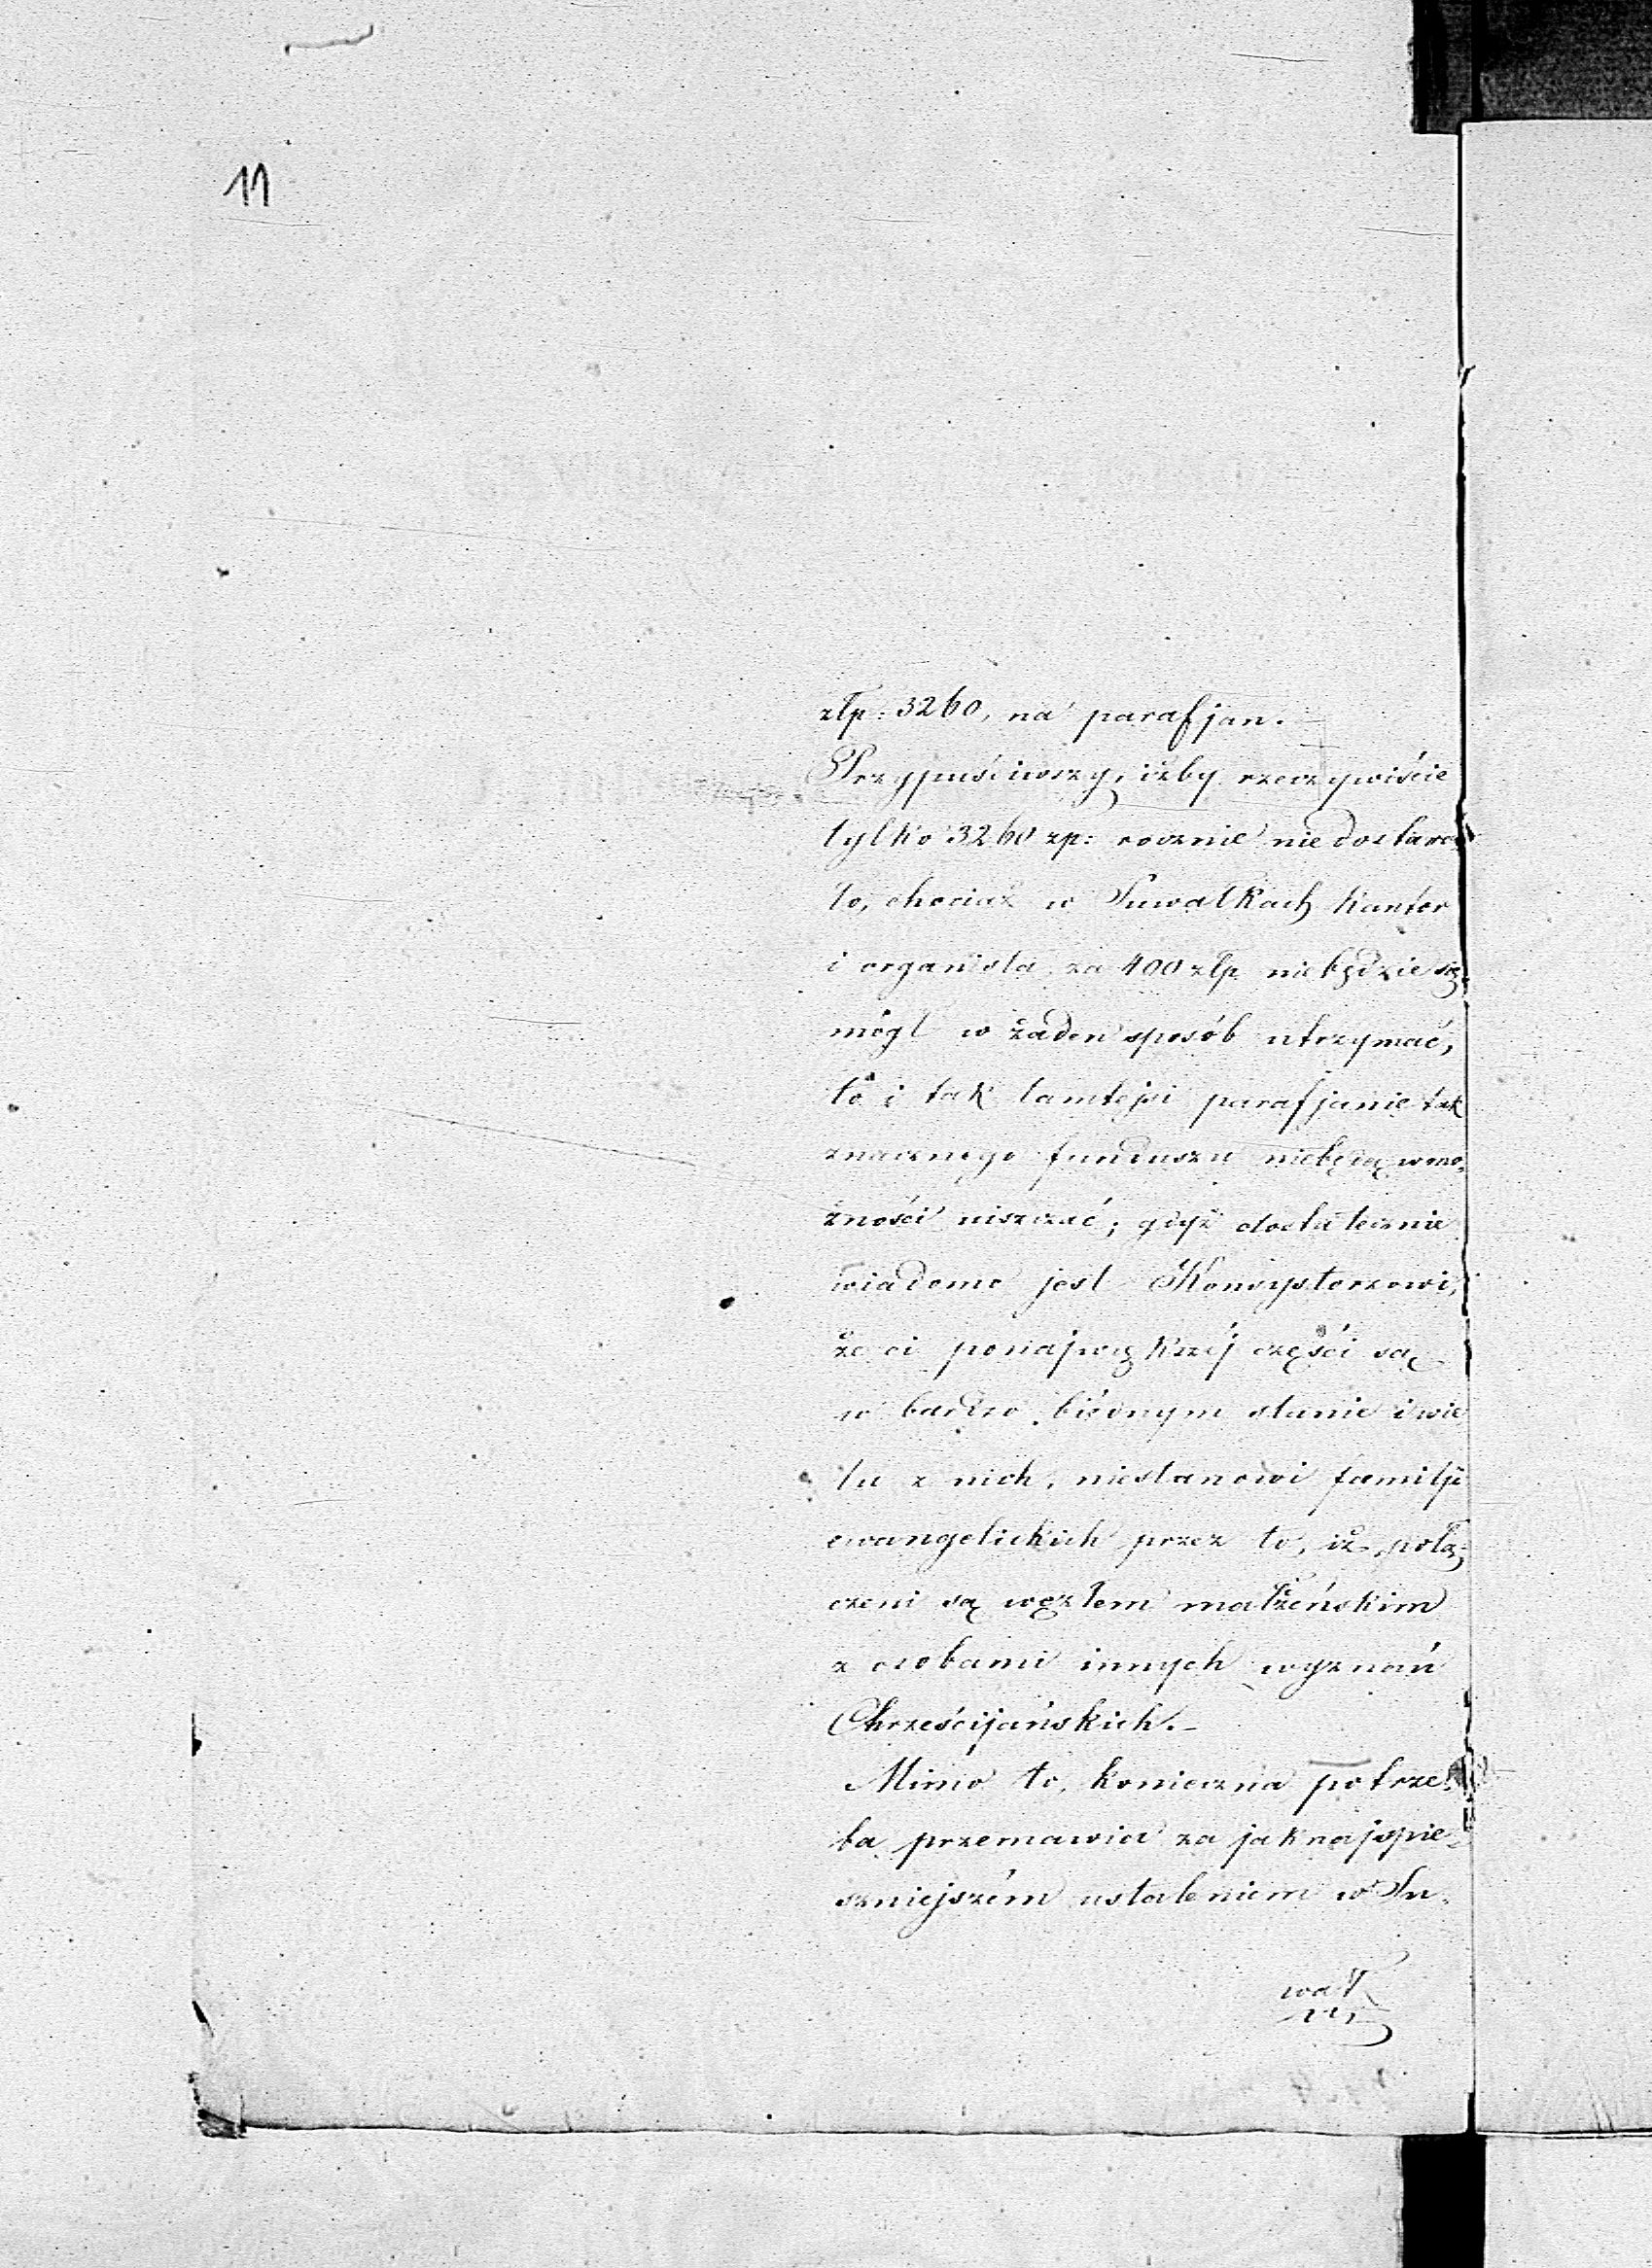 11
złp: 3260, na parafjan.
Przypuściwszy, iżby rzeczywiście
tylko 3260 zp: rocznie niedostawa-
ło, chociaż w Suwałkach Kantor
i organista za 400 złp niebędzie się
mógł w żaden sposób utrzymać,
to i tak tamtejsi parafjanie tak
znacznego funduszu niebędą wmo-
żności uiszczać; gdyż dostatecznie
wiadomo jest Konsystorzowi,
że ci ponajwiększéj części są
w bardzo biédnym stanie i wie
lu z nich, niestanowi familji
ewangelickich przez to, iż połą-
czeni są węzłem małżeńskim
z osobami innych wyznań
Chrześcijańskich.-
Mimo to, konieczna potrze-
ba przemawia za jaknajspie-
szniejszém ustaleniem w Su-
wałk